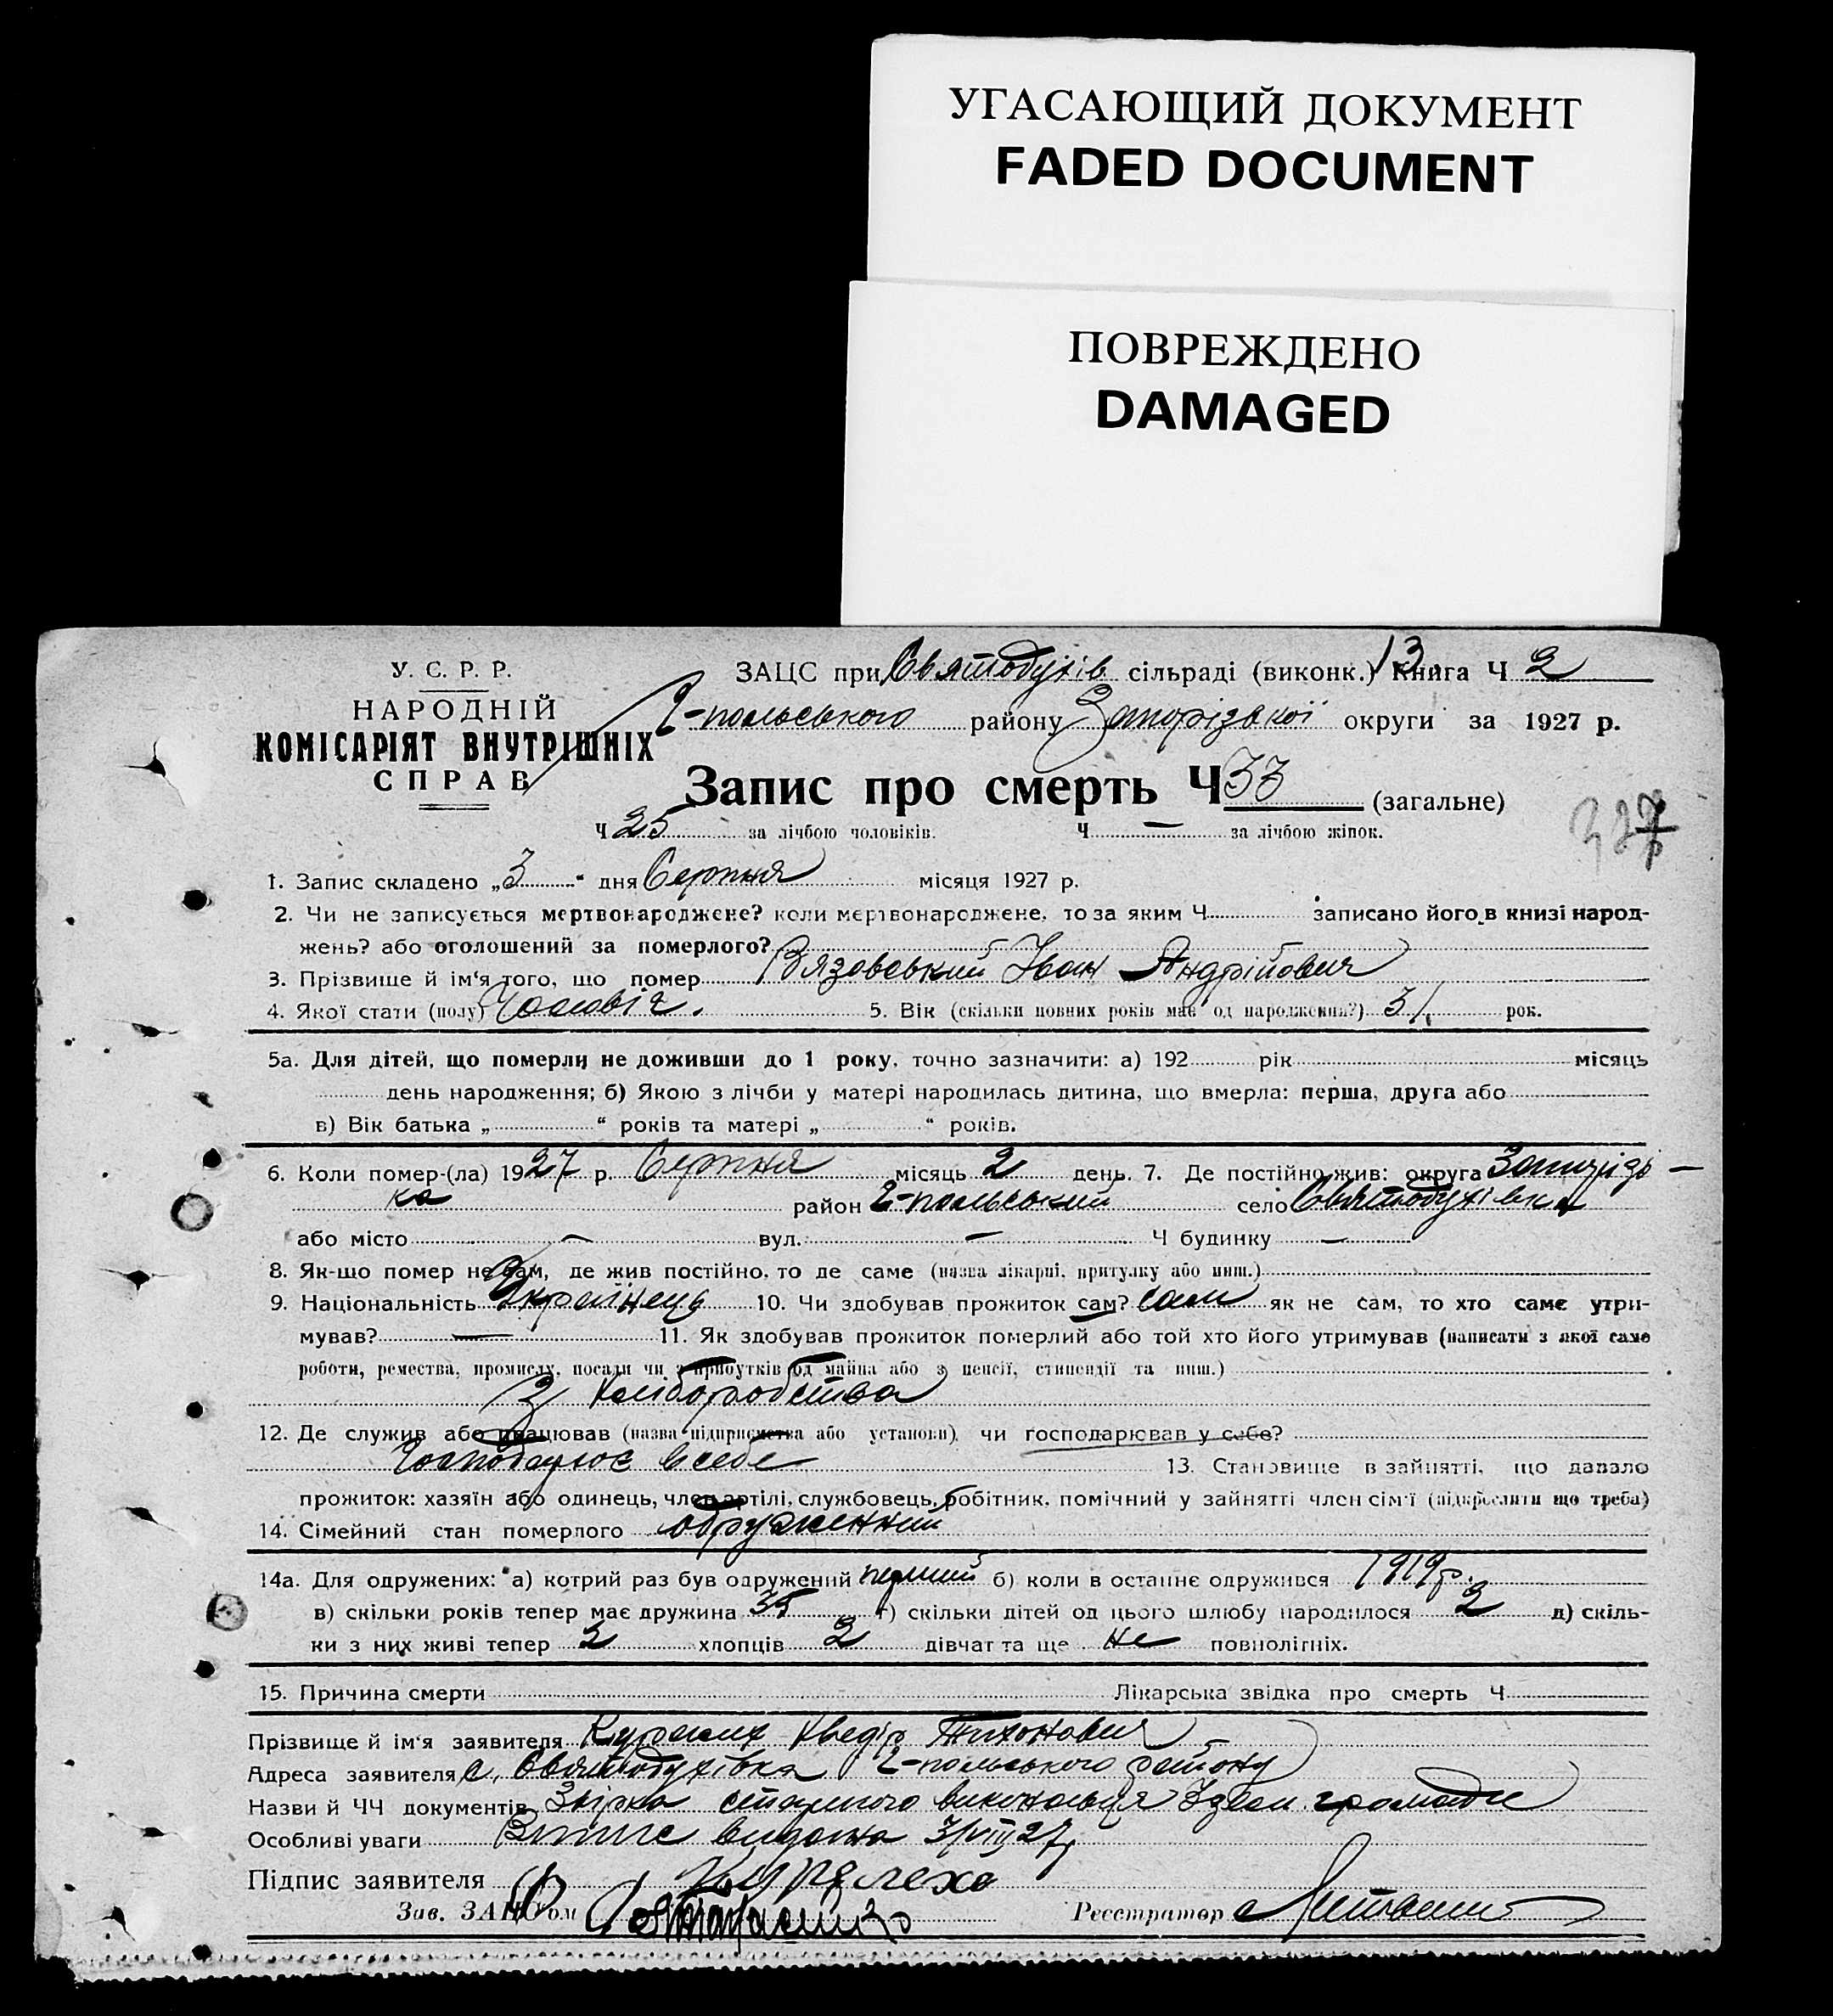 УГАСАЮЩИЙ ДОКУМЕНТ
FADED DOCUMENT
ПОВРЕЖДЕНО
DAMAGED
У. С. Р. Р.
НАРОДНІЙ
КОМІСАРІЯТ ВНУТРІШНІХ
СПРАВ
ЗАЦС при Святодухів сільраді (виконк.) 13. Книга Ч 2
Г-польського району Запорізької округи за 1927 р.
Запис про смерть Ч 33 (загальне)
Ч 25 за лічбою чоловіків. Ч — за лічбою жінок.
327
1. Запис складено „3“ дня Серпня місяця 1927 р.
2. Чи не записується мертвонароджене? коли мертвонароджене, то за яким Ч записано його в книзі народ-
жень? або оголошений за померлого?
3. Прізвище й ім'я того, що помер Вязовський Іван Андрійович
4. Якої стати (полу) Чоловіч. 5. Вік (скільки повних років мав од народження?) 31 рок.
5а. Для дітей, що померли не доживши до 1 року, точно зазначити: а) 192 рік місяць
день народження; б) Якою з лічби у матері народилась дитина, що вмерла: перша, друга або
в) Вік батька „ “ років та матері „ “ років.
6. Коли помер-(ла) 1927 р. Серпня місяць 2 день. 7. Де постійно жив: округа Запорізь-
ка район Г-польський село Святодухівка
або місто — вул. — Ч будинку —
8. Як-що помер не там, де жив постійно, то де саме (назва лікарні, притулку або инш.)
9. Національність Українець 10. Чи здобував прожиток сам? сам як не сам, то хто саме утри-
мував? — 11. Як здобував прожиток померлий або той хто його утримував (написати з якої саме
роботи, ремества, промислу, посади чи з прибутків од майна або з пенсії, стипендії та инш.)
З хліборобства
12. Де служив або працював (назва підприємства або установи) чи господарював у себе?
Господарює в себе 13. Становище в зайнятті, що давало
прожиток: хазяїн або одинець, член артілі, службовець, робітник, помічний у зайнятті член сім'ї (підкреслити що треба)
14. Сімейний стан померлого одружений
14а. Для одружених: а) котрий раз був одружений перший б) коли в останнє одружився 1919 р.
в) скільки років тепер має дружина 35 г) скільки дітей од цього шлюбу народилося 2 д) скіль-
ки з них живі тепер 2 хлопців 2 дівчат та ще не повнолітніх.
15. Причина смерти Лікарська звідка про смерть Ч
Прізвище й ім'я заявителя Хведір Тихонович
Адреса заявителя с. Святодухівка Г-польського району
Назви й ЧЧ документів Звірка старшого виконавця громади
Особливі уваги Витяг видана 3/VIII 27
Підпис заявителя
Зав. ЗАЦС'ом
Реєстратор